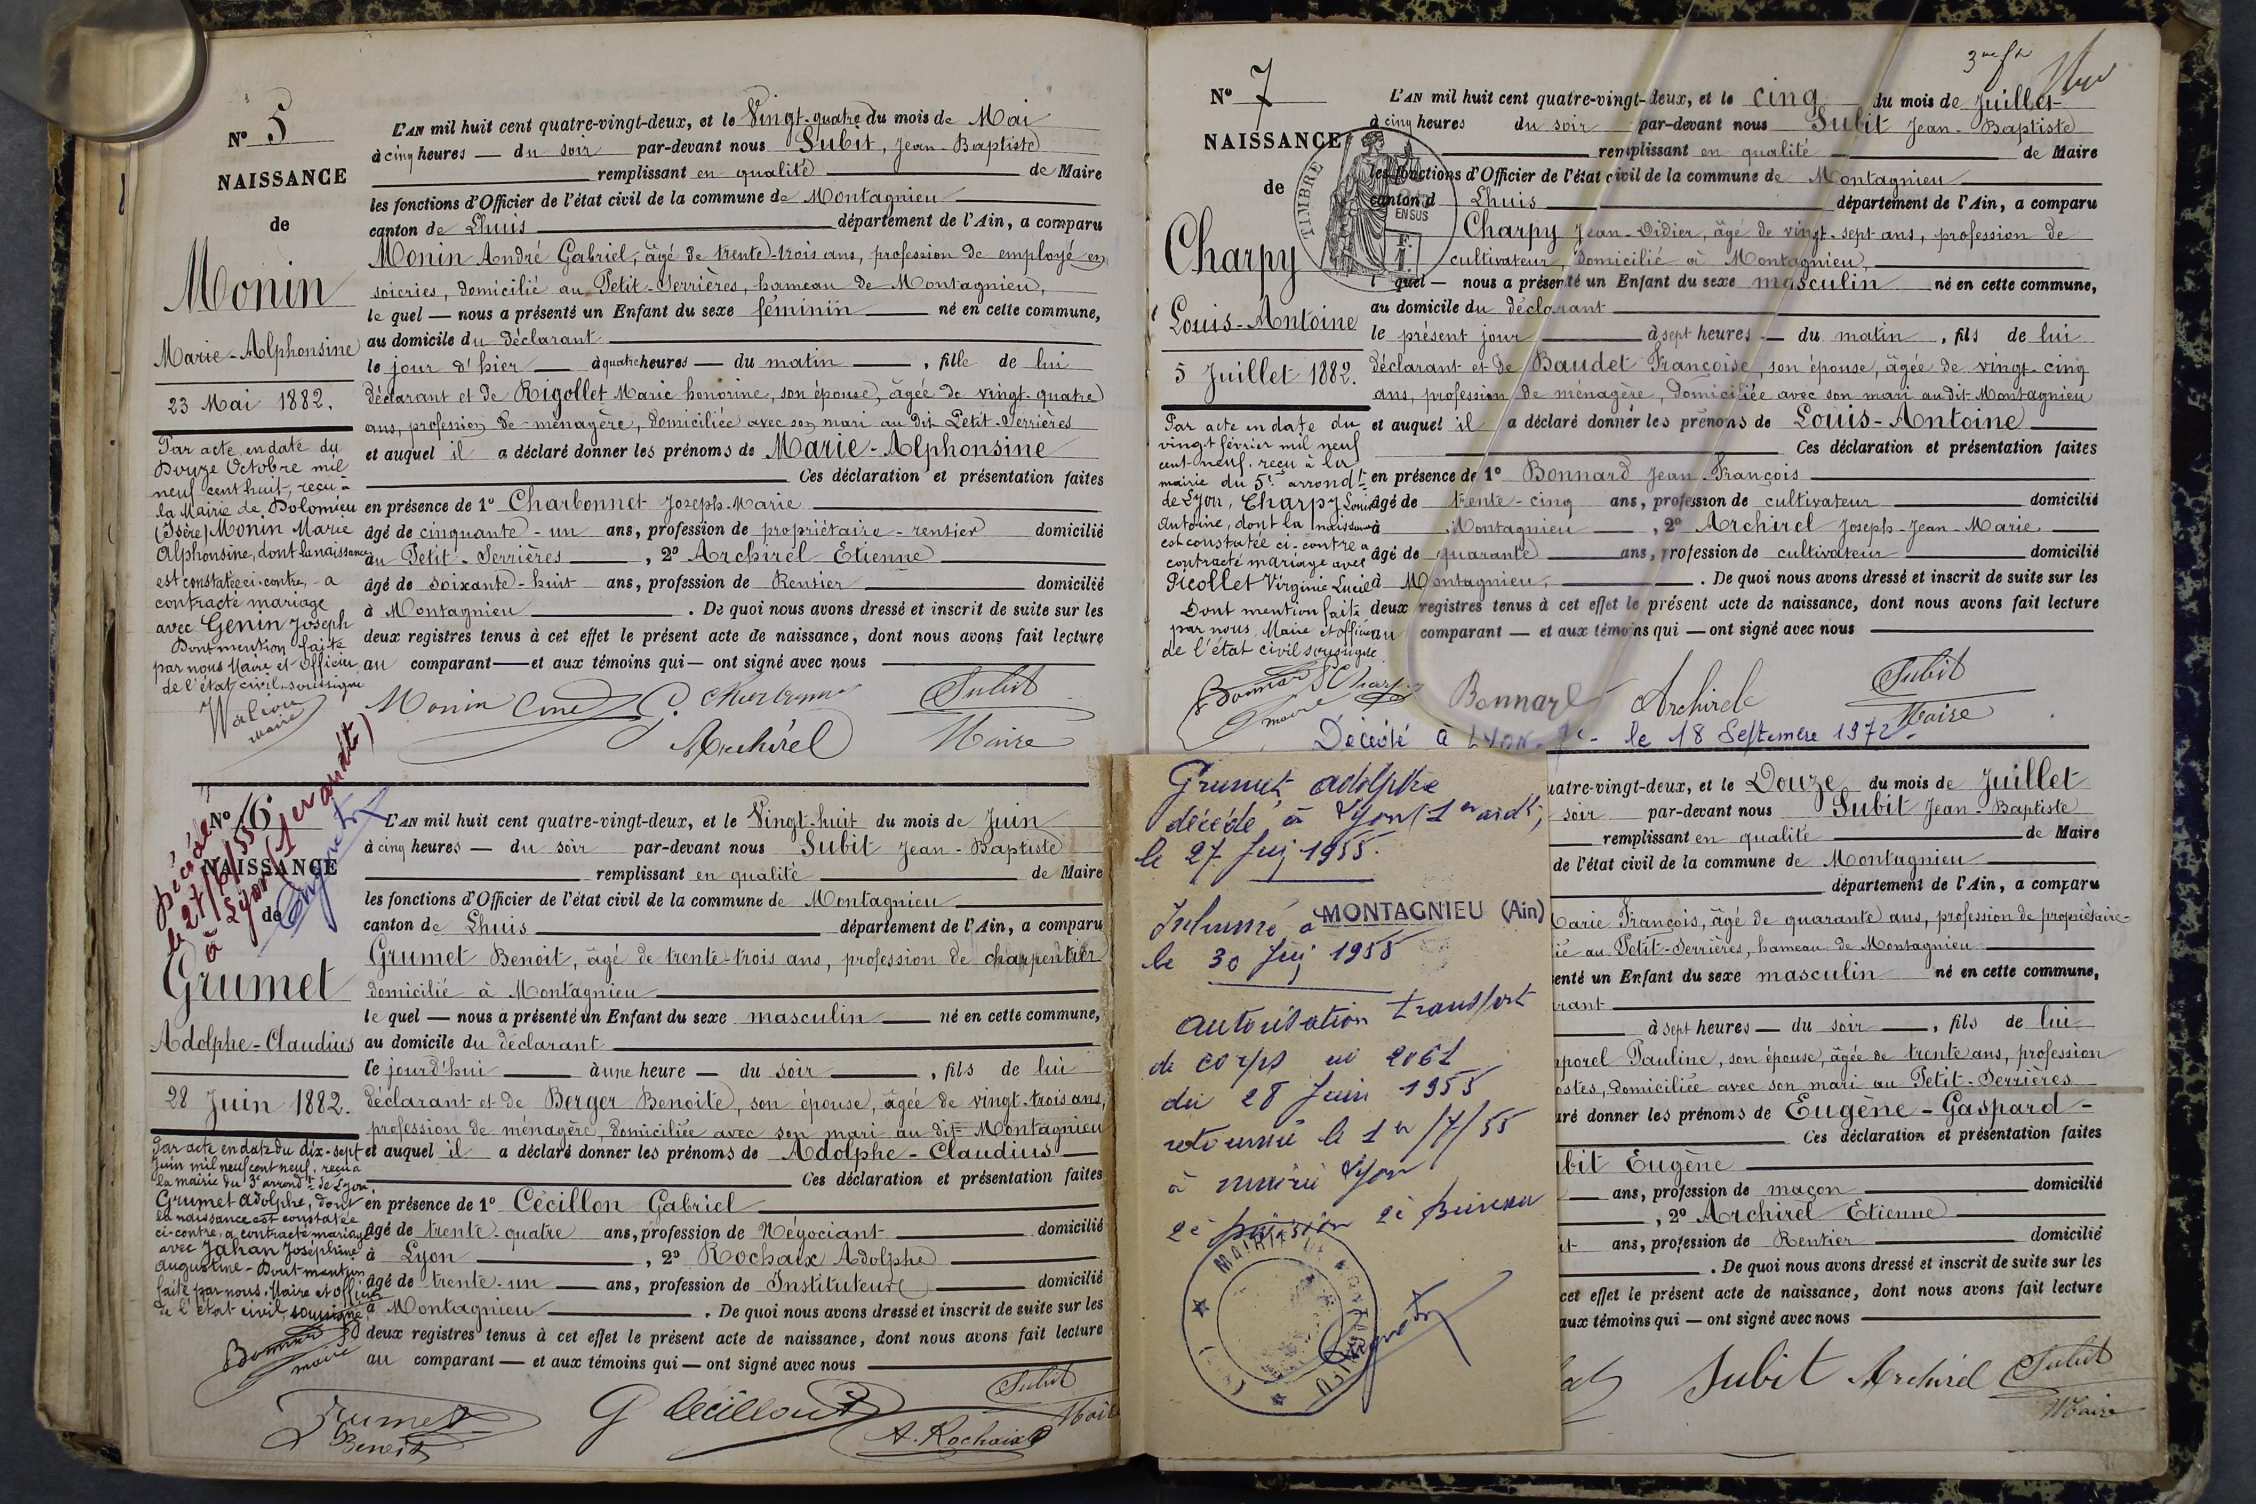 N° 5
NAISSANCE
de
Monin
Marie-Alphonsine
23 Mai 1882.
Par acte en date du
Douze Octobre mil
neuf cent huit, reçu à
la Mairie de Dolomieu
(Isère) Monin Marie
Alphonsine, dont la naissance
est constatée ci-contre, a
contracté mariage
avec Genin Joseph
Dont mention faite
par nous Maire et Officier
de l'état civil soussigné
maire
L'AN mil huit cent quatre-vingt-deux, et le Vingt-quatre du mois de Mai
à cinq heures — du soir par-devant nous Subit, Jean-Baptiste
remplissant en qualité de Maire
les fonctions d'Officier de l'état civil de la commune de Montagnieu
canton de Lhuis département de l'Ain, a comparu
Monin André Gabriel, âgé de trente-trois ans, profession de employé en
soieries, domicilié au Petit-Serrières, hameau de Montagnieu,
le quel — nous a présenté un Enfant du sexe féminin né en cette commune,
au domicile du déclarant
le jour d'hier à quatre heures — du matin , fille de lui
déclarant et de Rigollet Marie honorine, son épouse, âgée de vingt-quatre
ans, profession de ménagère, domiciliée avec son mari au dit Petit-Serrières
et auquel il a déclaré donner les prénoms de Marie-Alphonsine
Ces déclaration et présentation faites
en présence de 1° Charbonnet Joseph-Marie
âgé de cinquante-un ans, profession de propriétaire-rentier domicilié
au Petit-Serrières , 2° Archirel Etienne
âgé de soixante-huit ans, profession de Rentier domicilié
à Montagnieu . De quoi nous avons dressé et inscrit de suite sur les
deux registres tenus à cet effet le présent acte de naissance, dont nous avons fait lecture
au comparant — et aux témoins qui — ont signé avec nous
Monin Subit
Archirel Maire
N° 6
NAISSANCE
de
Décédé
le 27/6/55
à Lyon (1er arrondt)
Grumet
Adolphe-Claudius
28 Juin 1882.
Par acte en date du dix-sept
Juin mil neuf cent neuf, reçu à
la mairie du 3e arrondt de Lyon
Grumet Adolphe, dont
la naissance est constatée
ci-contre, a contracté mariage
avec Jahan Joséphine
Augustine - Dont mention
faite par nous, Maire et Officier
de l'état civil, soussigné
maire
L'AN mil huit cent quatre-vingt-deux, et le Vingt-huit du mois de Juin
à cinq heures — du soir par-devant nous Subit Jean-Baptiste
remplissant en qualité de Maire
les fonctions d'Officier de l'état civil de la commune de Montagnieu
canton de Lhuis département de l'Ain, a comparu
Grumet Benoit, âgé de trente-trois ans, profession de charpentier
domicilié à Montagnieu
le quel — nous a présenté un Enfant du sexe masculin né en cette commune,
au domicile du déclarant
le jourd'hui à une heure — du soir , fils de lui
déclarant et de Berger Benoite, son épouse, âgée de vingt-trois ans,
profession de ménagère, domiciliée avec son mari au dit Montagnieu
et auquel il a déclaré donner les prénoms de Adolphe-Claudius
Ces déclaration et présentation faites
en présence de 1° Cécillon Gabriel
âgé de trente-quatre ans, profession de Négociant domicilié
à Lyon , 2° Rochaix Adolphe
âgé de trente-un ans, profession de Instituteur domicilié
à Montagnieu . De quoi nous avons dressé et inscrit de suite sur les
deux registres tenus à cet effet le présent acte de naissance, dont nous avons fait lecture
au comparant — et aux témoins qui — ont signé avec nous
Grumet G Cécillon Subit
Benoit A. Rochaix Maire
N° 7
NAISSANCE
de
Charpy
Louis-Antoine
5 Juillet 1882.
Par acte en date du
vingt février mil neuf
cent neuf, reçu à la
mairie du 5e arrondt
de Lyon, Charpy Louis
Antoine, dont la naissance
est constatée ci-contre a
contracté mariage avec
Picollet Virginie Lucie
Dont mention faite
par nous, Maire et officier
de l'état civil soussigné
maire
TIMBRE
EN SUS
L'AN mil huit cent quatre-vingt-deux, et le cinq du mois de Juillet
à cinq heures du soir par-devant nous Subit Jean-Baptiste
remplissant en qualité de Maire
les fonctions d'Officier de l'état civil de la commune de Montagnieu
canton d Lhuis département de l'Ain, a comparu
Charpy Jean-Didier, âgé de vingt-sept ans, profession de
cultivateur, domicilié à Montagnieu,
l quel — nous a présenté un Enfant du sexe masculin né en cette commune,
au domicile du déclarant
le présent jour à sept heures — du matin , fils de lui
déclarant et de Baudet Françoise, son épouse, âgée de vingt-cinq
ans, profession de ménagère, domiciliée avec son mari au dit Montagnieu
et auquel il a déclaré donner les prénoms de Louis-Antoine
Ces déclaration et présentation faites
en présence de 1° Bonnard Jean-François
âgé de trente-cinq ans, profession de cultivateur domicilié
à Montagnieu , 2° Archirel Joseph-Jean-Marie
âgé de quarante ans, profession de cultivateur domicilié
à Montagnieu, . De quoi nous avons dressé et inscrit de suite sur les
deux registres tenus à cet effet le présent acte de naissance, dont nous avons fait lecture
au comparant — et aux témoins qui — ont signé avec nous
Charpy Bonnard Archirel Subit
Maire
Décédé à Lyon le 18 Septembre 1972.
Grumet adolphe
décédé à Lyon (1er ardt),
le 27 Juij 1955.
Inhumé à MONTAGNIEU (Ain)
le 30 Juij 1955
autorisation transfert
de corps n° 2061
du 28 Juin 1955
retourné le 1er/7/55
à mairie Lyon
2è Division 2è Bureau
MAIRIE DE MONTAGNIEU
uatre-vingt-deux, et le Douze du mois de Juillet
soir par-devant nous Subit Jean-Baptiste
remplissant en qualité de Maire
de l'état civil de la commune de Montagnieu
département de l'Ain, a comparu
Marie François, âgé de quarante ans, profession de propriétaire-
ié au Petit-Serrières, hameau de Montagnieu
enté un Enfant du sexe masculin né en cette commune,
arant
à sept heures — du soir , fils de lui
porel Pauline, son épouse, âgée de trente ans, profession
ostes, domiciliée avec son mari au Petit-Serrières
aré donner les prénoms de Eugène-Gaspard-
Ces déclaration et présentation faites
ubit Eugène
ans, profession de maçon domicilié
, 2° Archirel Etienne
it ans, profession de Rentier domicilié
. De quoi nous avons dressé et inscrit de suite sur les
cet effet le présent acte de naissance, dont nous avons fait lecture
aux témoins qui — ont signé avec nous
Subit Archirel Subit
Maire